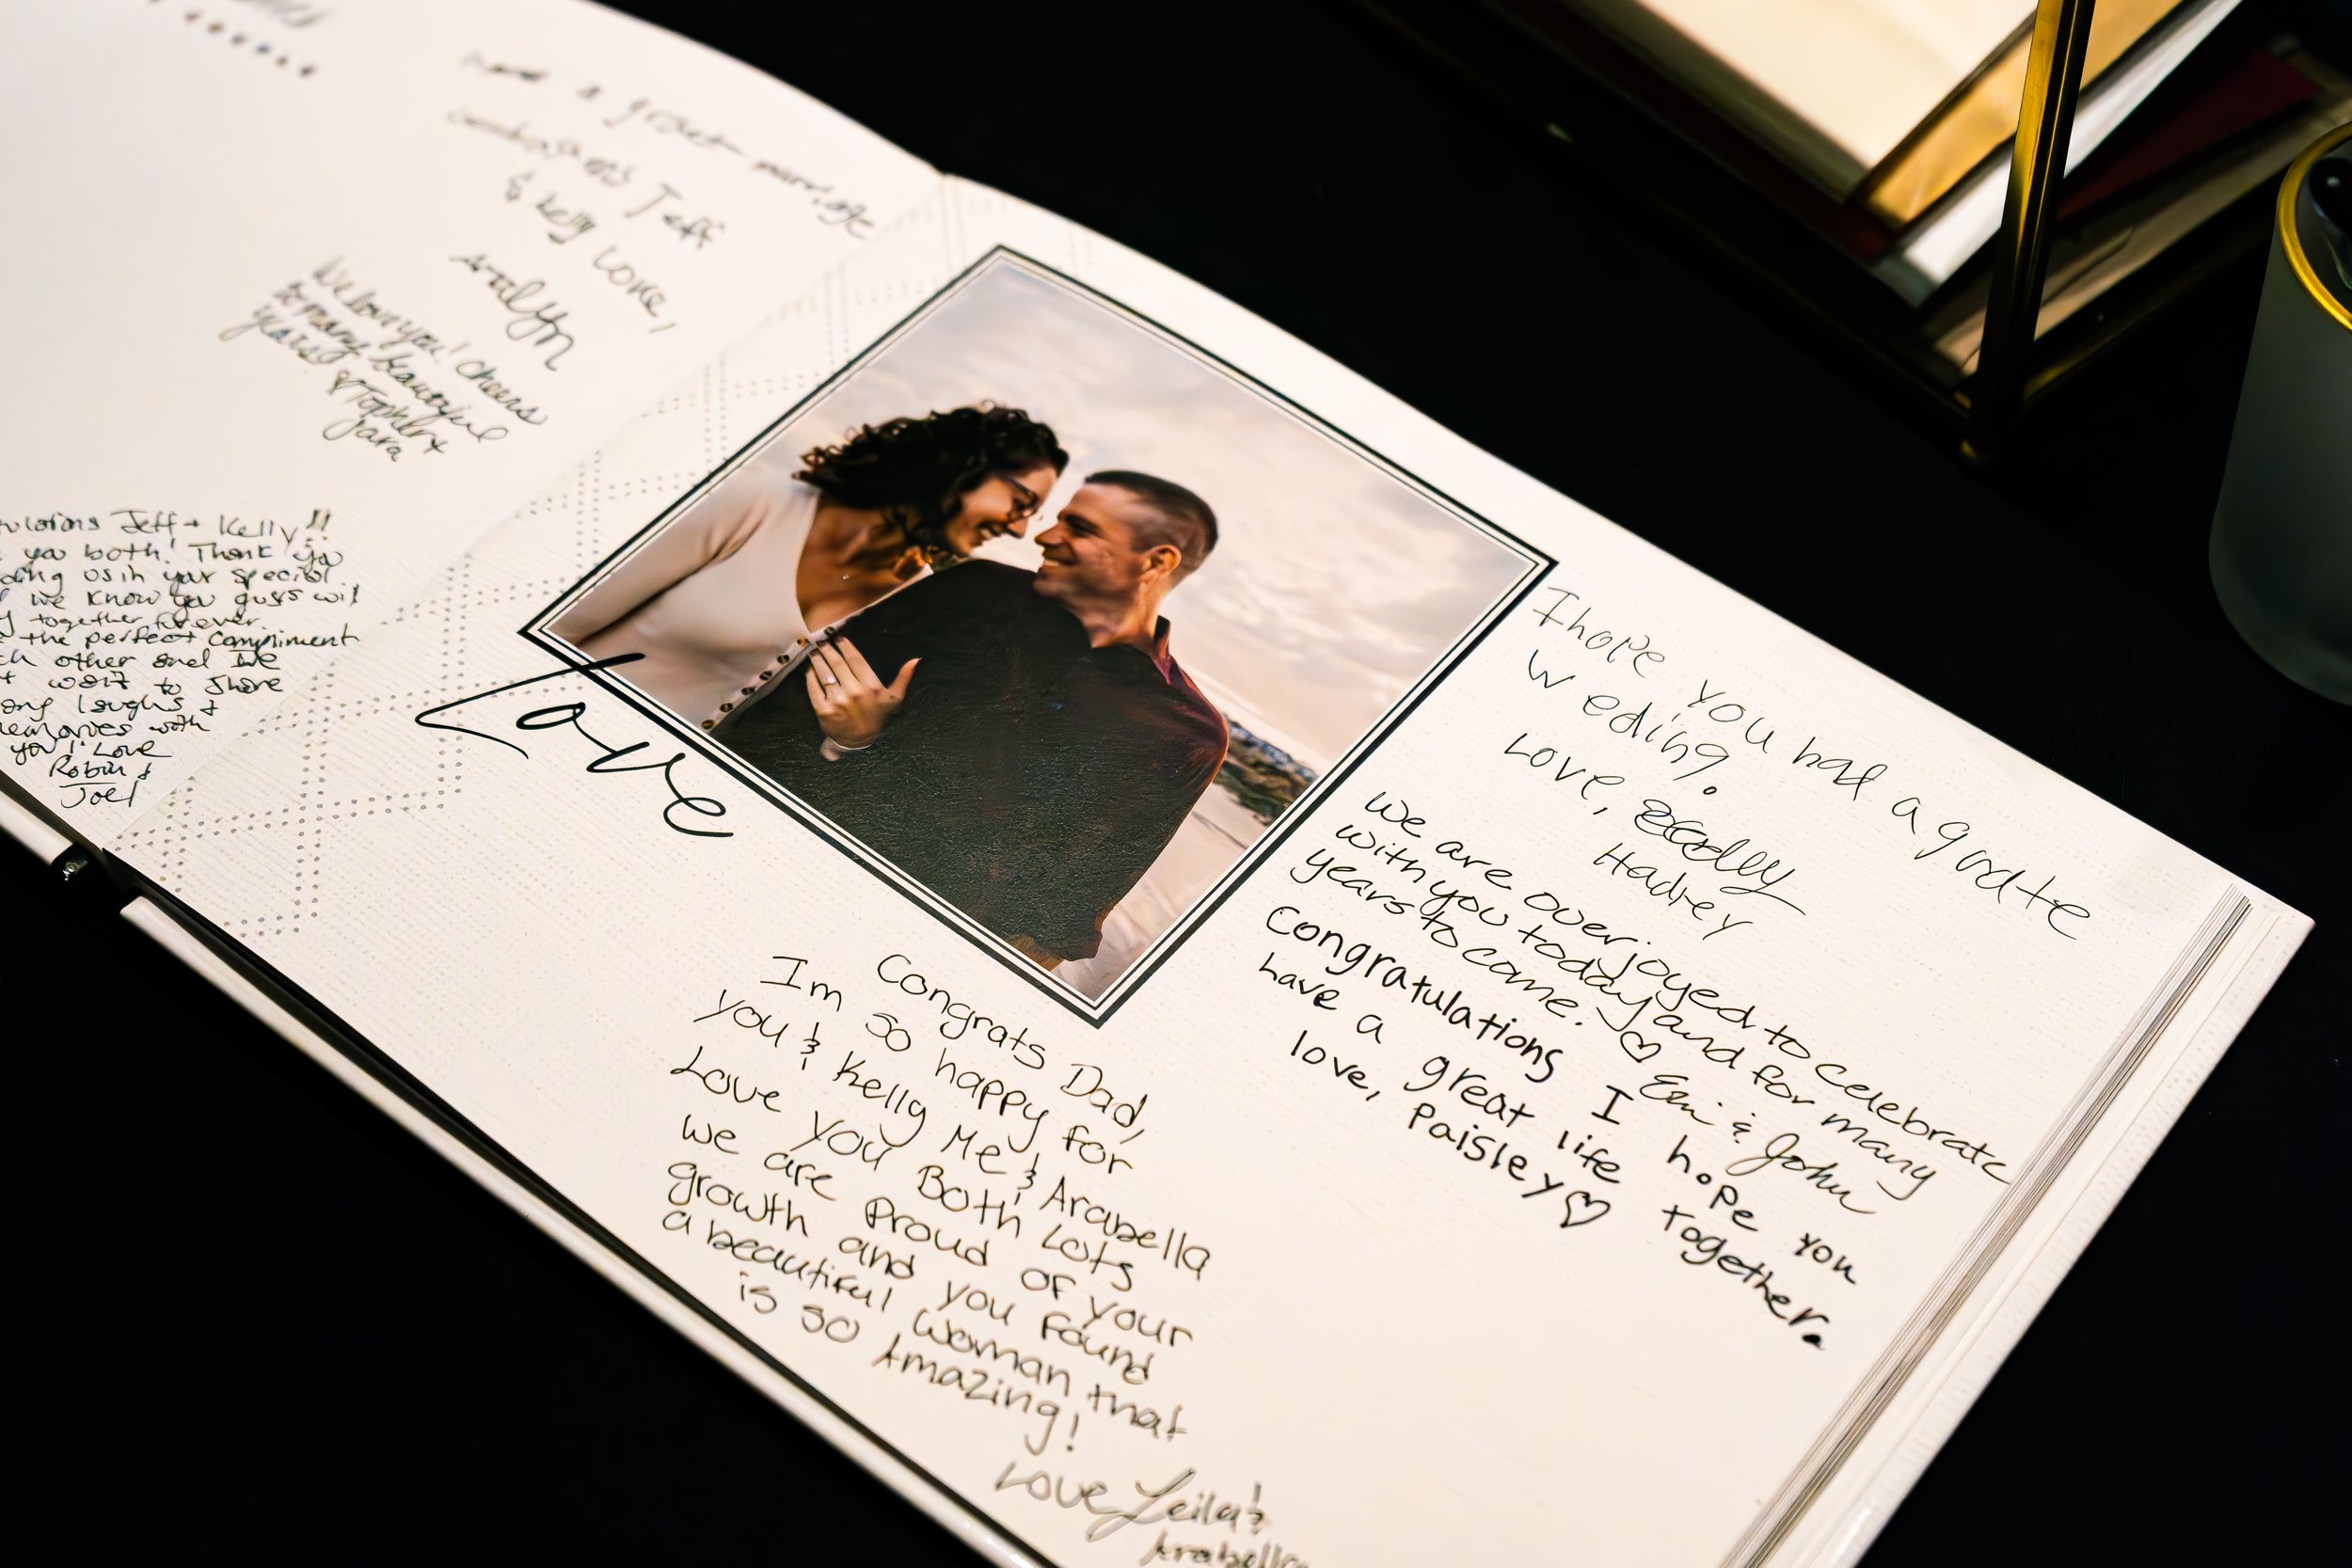 a great marriage
Jeff
& Kelly Love,
We love you! Cheers
to many beautiful
years!
Jeff + Kelly!!
you both! Thank you
us in your special
we know you guys will
together forever.
the perfect compliment
other and we
wait to share
long laughs &
memories with
you! Love
Robin &
Joel
Love
I hope you had a grate
Weding.
Love,
Hadley
We are overjoyed to celebrate
with you today and for many
years to come. ♡ Eni & John
Congratulations I hope you
have a great life together.
love, Paisley♡
Congrats Dad,
Im so happy for
you & Kelly Me & Arabella
Love you Both Lots
we are Proud of your
growth and you found
a beautiful woman that
is so Amazing!
Love Leila &
Arabella